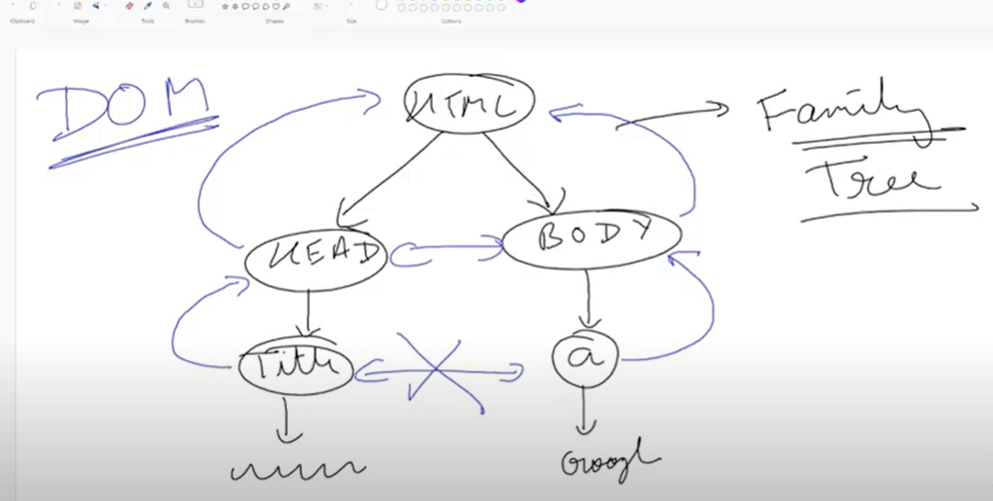 Clipboard
Image
Tools
Brushes
Shapes
Size
Colours
DOM
HTML
Family
Tree
HEAD
BODY
Title
a
Googl